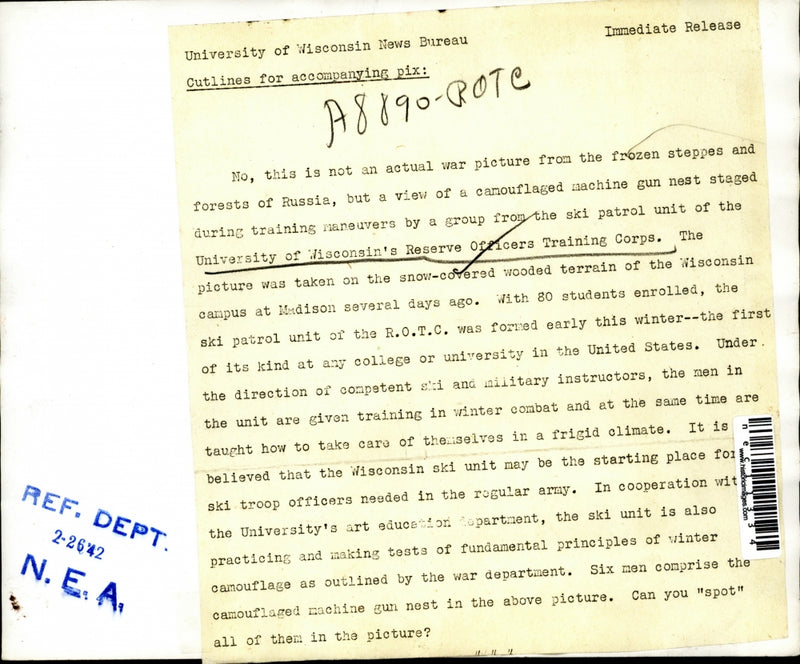 University of Wisconsin News Bureau
Immediate Release
Cutlines for accompanying pix:
A8890-ROTC
No, this is not an actual war picture from the frozen steppes and
forests of Russia, but a view of a camouflaged machine gun nest staged
during training maneuvers by a group from the ski patrol unit of the
University of Wisconsin's Reserve Officers Training Corps. The
picture was taken on the snow-covered wooded terrain of the Wisconsin
campus at Madison several days ago. With 80 students enrolled, the
ski patrol unit of the R.O.T.C. was formed early this winter--the first
of its kind at any college or university in the United States. Under
the direction of competent ski and military instructors, the men in
the unit are given training in winter combat and at the same time are
taught how to take care of themselves in a frigid climate. It is
believed that the Wisconsin ski unit may be the starting place for
ski troop officers needed in the regular army. In cooperation wit
the University's art education department, the ski unit is also
practicing and making tests of fundamental principles of winter
camouflage as outlined by the war department. Six men comprise the
camouflaged machine gun nest in the above picture. Can you "spot"
all of them in the picture?
" " "
REF. DEPT.
2-26 42
N. E. A.